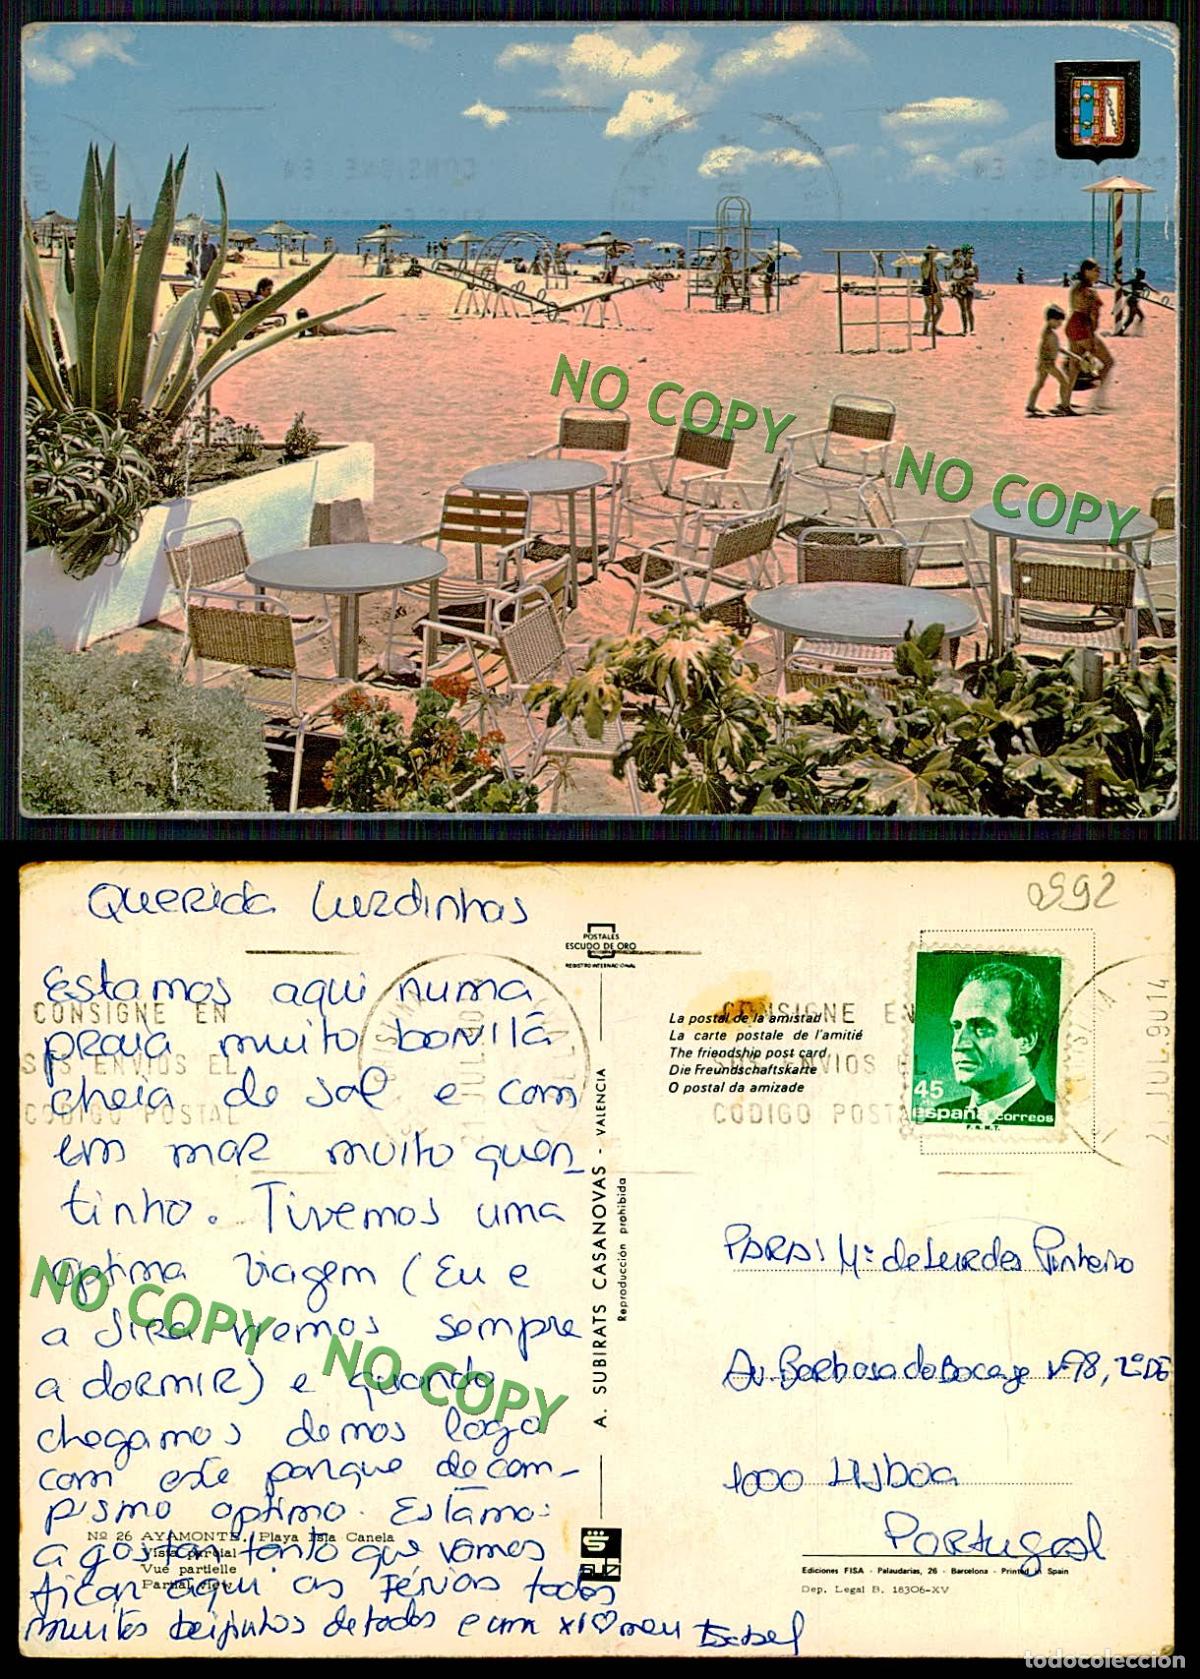 NO COPY
NO COPY
Querida Lurdinhas
Estamos aqui numa
praia muito bonita
cheia de sol e com
um mar muito quen-
tinho. Tivemos uma
optima viagem (Eu e
a Sira viemos sempre
a dormir) e quando
chegamos demos logo
com este parque de cam-
pismo optimo. Estamos
a gostar tanto que vamos
ficar aqui as Férias todas
muitos beijinhos de todos e um xi♡ meu Isabel
0992
POSTALES
ESCUDO DE ORO
REGISTRO INTERNACIONAL
CONSIGNE EN
SUS ENVIOS EL
CODIGO POSTAL
21 JUL 90
La postal de la amistad
La carte postale de l'amitié
The friendship post card
Die Freundschaftskarte
O postal da amizade
CONSIGNE EN
SUS ENVIOS EL
CODIGO POSTAL
45
españa correos
F.N.M.T.
21 JUL. 90 14
A. SUBIRATS CASANOVAS - VALENCIA
Reproducción prohibida
PARA: Mª de Lurdes Pinheiro
Av. Barbosa do Bocage nº 98, 2º DE
1000 Lisboa
Portugal
Nº 26 AYAMONTE. Playa Isla Canela
Vista parcial
Vue partielle
Partial view
Ediciones FISA - Palaudarias, 26 - Barcelona - Printed in Spain
Dep. Legal B. 18306-XV
NO COPY
NO COPY
todocoleccion